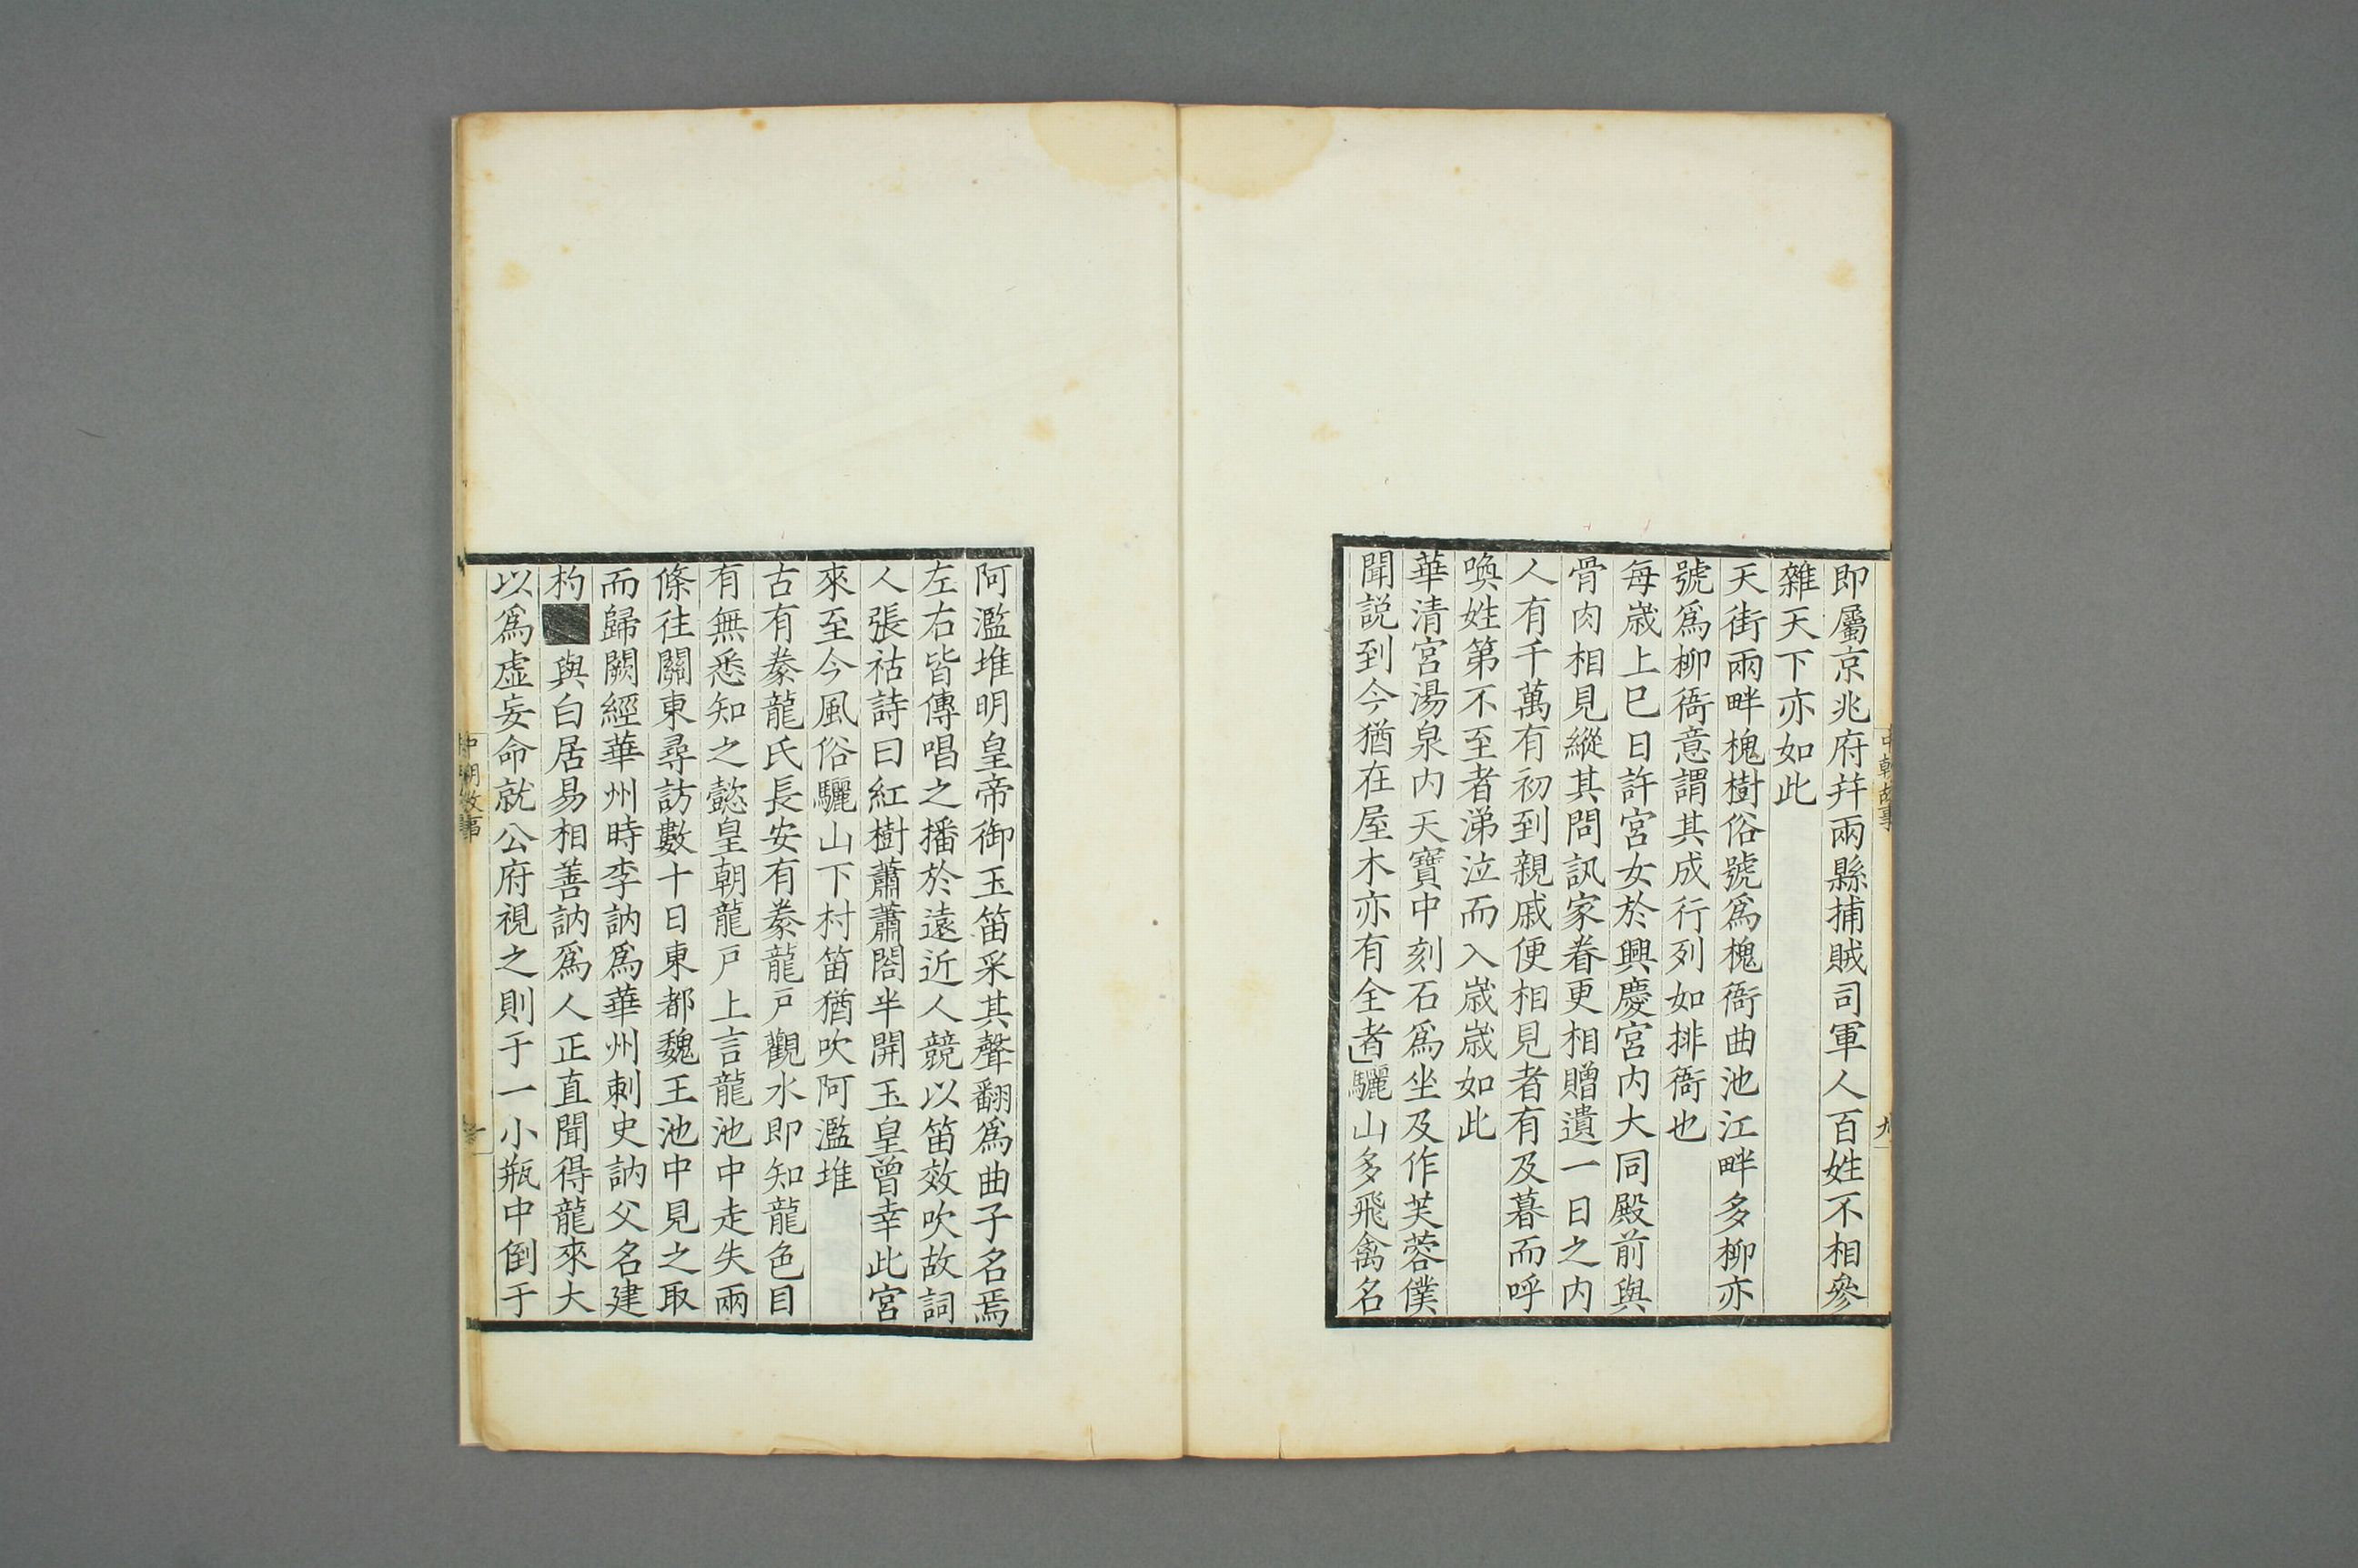 中朝故事
九
即屬京兆府并兩縣捕賊司軍人百姓不相參
雜天下亦如此
天街兩畔槐樹俗號爲槐衙曲池江畔多柳亦
號爲柳衙意謂其成行列如排衙也
每歲上巳日許宮女於興慶宮內大同殿前與
骨肉相見縱其問訊家眷更相贈遺一日之內
人有千萬有初到親戚便相見者有及暮而呼
喚姓第不至者涕泣而入歲歲如此
華清宮湯泉內天寶中刻石爲坐及作芙蓉僕
聞説到今猶在屋木亦有全者驪山多飛禽名
阿濫堆明皇帝御玉笛采其聲翻爲曲子名焉
左右皆傳唱之播於遠近人競以笛效吹故詞
人張祜詩曰紅樹蕭蕭閤半開玉皇曾幸此宮
來至今風俗驪山下村笛猶吹阿濫堆
古有豢龍氏長安有豢龍戶觀水即知龍色目
有無悉知之懿皇朝龍戶上言龍池中走失兩
條往關東尋訪數十日東都魏王池中見之取
而歸闕經華州時李訥爲華州刺史訥父名建
杓■與白居易相善訥爲人正直聞得龍來大
以爲虛妄命就公府視之則于一小瓶中倒于
中朝故事